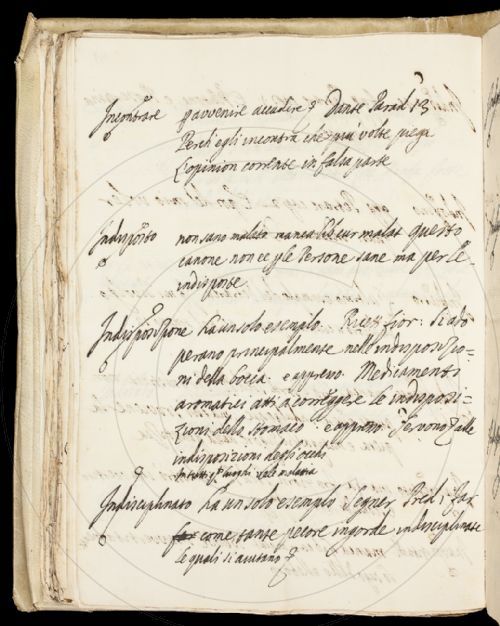 Incontrare p avvenire accadere Dante Parad. 13
Perch'egli incontra che più volte piega
L'opinion corrente in falsa parte
Indisposto non sano malato manca questo
canone non ce p le Persone sane ma per le
indisposte
Indisposizione ha un solo esempio. Ricett fior: si ado
perano principalmente nelle indisposizio=
ni della bocca. e appresso. Medicamenti
aromatici atti a correggere le indisposi=
zioni dello stomaco e appresso. Servono alle
indisposizioni degli occhi
In tutti luoghi vale malattia
Indisciplinato ha un solo esempio. Segner. Pred. 1
come tante pecore ingorde indisciplinate
le quali si aiutano